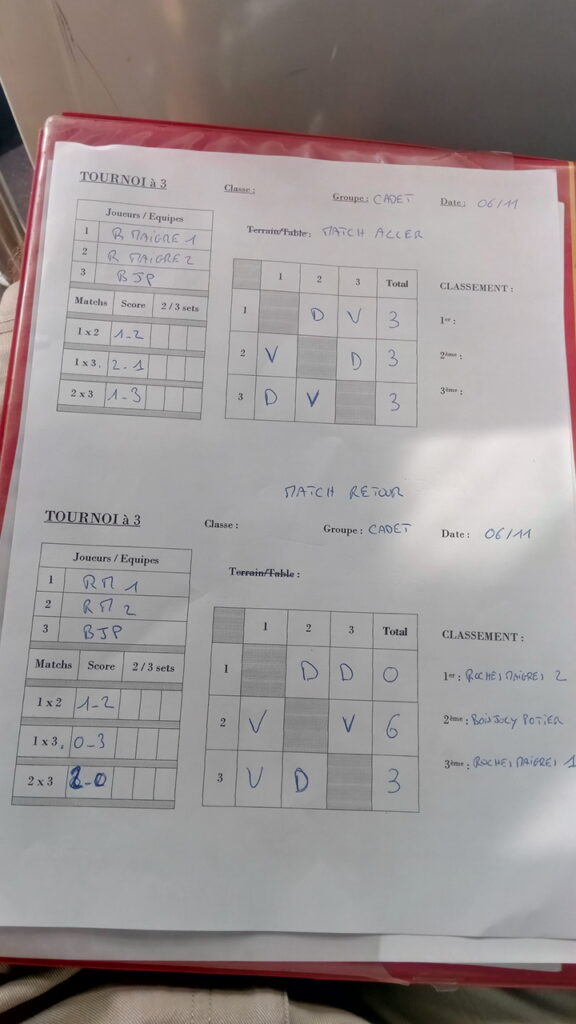 TOURNOI à 3
Classe :
Groupe : CADET
Date : 06/11
Joueurs / Equipes
1 R MAIGRE 1
2 R MAIGRE 2
3 BJP
Terrain/Table : MATCH ALLER
Matchs Score 2 / 3 sets
1 x 2 1-2
1 x 3 2-1
2 x 3 1-3
1 2 3 Total
1 D V 3
2 V D 3
3 D V 3
CLASSEMENT :
1er :
2ème :
3ème :
MATCH RETOUR
TOURNOI à 3
Classe :
Groupe : CADET
Date : 06/11
Joueurs / Equipes
1 RM 1
2 RM 2
3 BJP
Terrain/Table :
Matchs Score 2 / 3 sets
1 x 2 1-2
1 x 3 0-3
2 x 3 2-0
1 2 3 Total
1 D D 0
2 V V 6
3 V D 3
CLASSEMENT :
1er : ROCHES MAIGRES 2
2ème : BONJOLY POTIER
3ème : ROCHES MAIGRES 1